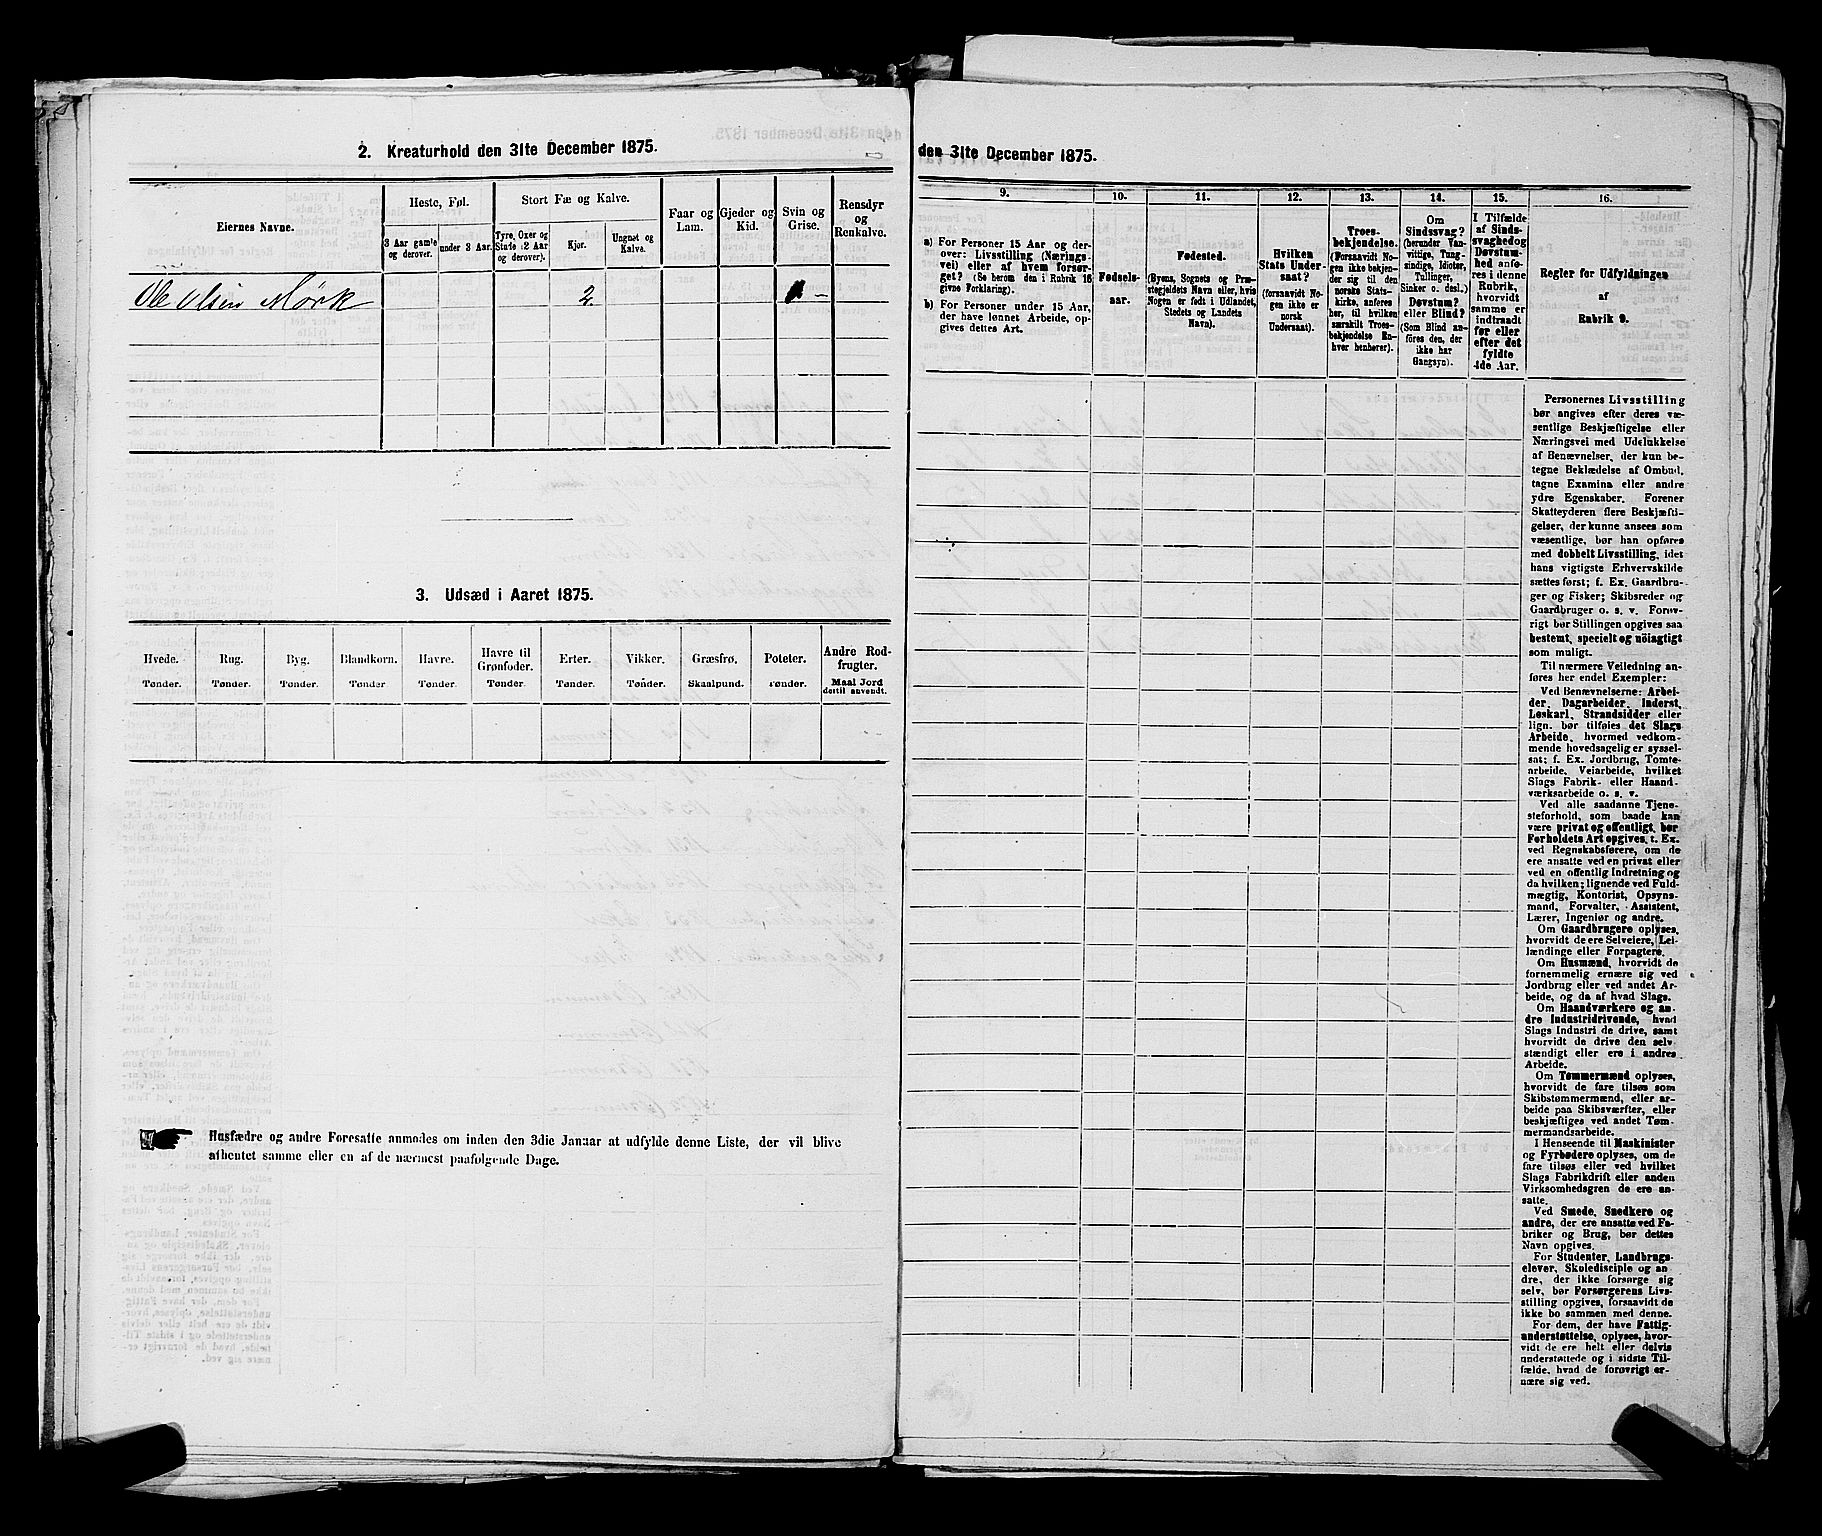 2. Kreaturhold den 31te December 1875.
Eiernes Navne.
Heste, Føl.
3 Aar gamle og derover.
under 3 Aar.
Stort Fæ og Kalve.
Tyre, Oxer og Stude (2 Aar og derover).
Kjør.
Ungnøt og Kalve.
Faar og Lam.
Gjeder og Kid.
Svin og Grise.
Rensdyr og Renkalve.
Ole Olsen Mörk 2 –
3. Udsæd i Aaret 1875.
Hvede. Rug. Byg. Blandkorn. Havre. Havre til Grønfoder. Erter. Vikker. Græsfrø. Poteter. Andre Rodfrugter.
Tønder. Tønder. Tønder. Tønder Tønder. Tønder. Tønder. Tønder. Skaalpund. Tønder. Maal Jord dertil anvendt.
Husfædre og andre Foresatte anmodes om inden den 3die Januar at udfylde denne Liste, der vil blive
afhentet samme eller en af de nærmest paafølgende Dage.
den 31te December 1875.
9. 10. 11. 12. 13. 14. 15. 16.
a) For Personer 15 Aar og derover: Livsstilling (Næringsvei) eller af hvem forsørget? (Se herom den i Rubrik 16 givne Forklaring).
b) For Personer under 15 Aar, der have lønnet Arbeide, opgives dettes Art.
Fødselsaar.
Fødested.
(Byens, Sognets og Præstegjeldets Navn eller, hvis Nogen er født i Udlandet, Stedets og Landets Navn).
Hvilken Stats Undersaat?
(forsaavidt Nogen ikke er norsk Undersaat).
Troesbekjendelse.
(Forsaavidt Nogen ikke bekjender sig til den norske Statskirke, anføres her, til hvilken særskilt Troesbekjendelse Enhver henhører).
Om Sindssvag?
(herunder Vanvittige, Tungsindige, Idioter, Tullinger, Sinker o. desl.)
Døvstum? eller Blind?
(Som Blind anføres den, der ikke har Gangsyn).
I Tilfælde af Sindssvaghed og Døvstumhed anføres i denne Rubrik, hvorvidt samme er indtraadt før eller efter det fyldte 4de Aar.
Regler for Udfyldningen
af
Rubrik 9.
Personernes Livsstilling
bør angives efter deres væ-
sentlige Beskjæftigelse eller
Næringsvei med Udelukkelse
af Benævnelser, der kun be-
tegne Beklædelse af Ombud,
tagne Examina eller andre
ydre Egenskaber. Forener
Skatteyderen flere Beskjæfti-
gelser, der kunne ansees som
væsentlige, bør han opføres
med dobbelt Livsstilling, idet
hans vigtigste Erhvervskilde
sættes først; f. Ex. Gaardbru-
ger og Fisker; Skibsreder og
Gaardbruger o. s. v. Forøv-
rigt bør Stillingen opgives saa
bestemt, specielt og nöiagtigt
som muligt.
Til nærmere Veiledning an-
føres her endel Exempler:
Ved Benævnelserne: Arbei-
der, Dagarbeider, Inderst,
Løskarl, Strandsidder eller
lign. bør tilføies det Slags
Arbeide, hvormed vedkom-
mende hovedsagelig er syssel-
sat; f. Ex. Jordbrug, Tomte-
arbeide, Veiarbeide, hvilket
Slags Fabrik- eller Haand-
værksarbeide o. s. v.
Ved alle saadanne Tjene-
steforhold, som baade kan
være privat og offentligt, bør
Forholdets Art opgives, t. Ex.
ved Regnskabsførere, om de
ere ansatte ved en privat eller
ved en offentlig Indretning og
da hvilken; lignende ved Fuld-
mægtig, Kontorist, Opsyns-
mand, Forvalter, Assistent,
Lærer, Ingeniør og andre.
Om Gaardbrugere oplyses,
hvorvidt de ere Selveiere, Lei-
lændinge eller Forpagtere.
Om Husmænd, hvorvidt de
fornemmelig ernære sig ved
Jordbrug eller ved andet Ar-
beide, og da af hvad Slags.
Om Haandværkere og an-
dre Industridrivende, hvad
Slags Industri de drive, samt
hvorvidt de drive den selv-
stændigt eller ere i andres
Arbeide.
Om Tømmermænd oplyses,
hvorvidt de fare tilsøs som
Skibstømmermænd, eller ar-
beide paa Skibsværfter, eller
beskjæftiges ved andet Tøm-
mermandsarbeide.
I Henseende til Maskinister
og Fyrbødere oplyses, om de
fare tilsøs eller ved hvilket
Slags Fabrikdrift eller anden
Virksomhedsgren de ere an-
satte.
Ved Smede, Snedkere og
andre, der ere ansatte ved Fa-
briker og Brug, bør dettes
Navn opgives.
For Studenter, Landbrugs-
elever, Skoledisciple og an-
dre, der ikke forsørge sig
selv, bør Forsørgerens Livs-
stilling opgives, forsaavidt de
ikke bo sammen med denne.
For dem, der have Fattig-
understøttelse, oplyses, hvor-
vidt de ere helt eller delvis
understøttede og i sidste Til-
fælde, hvad de forøvrigt er-
nære sig ved.